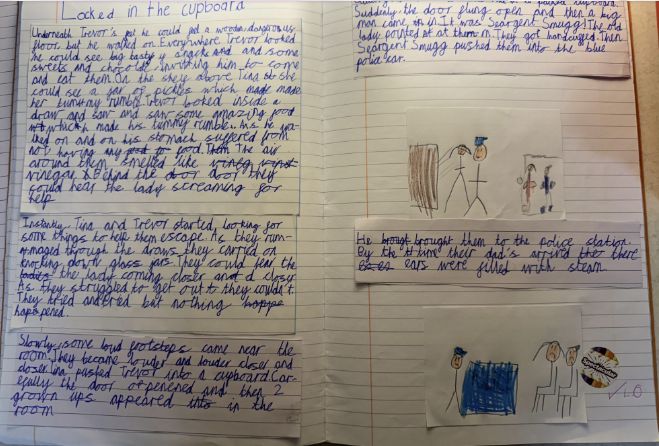 Locked in the cupboard
Underneath Trevor's feet he could feel a wooden, dangerous
floor but he walked on. Everywhere Trevor looked
he could see big tasty snacks and and some
sweets and chocolate inviting him to come
and eat them. On the shelf above Tina she
could see a jar of pickles which made
her tummy rumble. Trevor looked inside a
draw and saw and saw some amazing food
which made his tummy rumble. As he wa-
lked on and on his stomach suffered from
not having any food. The air
around them smelled like
vinegar. Behind the door they
could hear the lady screaming for
help
Instantly, Tina and Trevor started looking for
some things to help them escape. As they rum-
maged through the draws they carried on
knocking over glass jars. They could hear the
the lady coming closer and closer.
As they struggled to get out they couldn't.
They tried and tried but nothing
happened.
Slowly, some loud footsteps came near the
room. They became louder and louder closer and
closer. Tina pushed Trevor into a cupboard. Car-
efully the door opened and then 2
grown ups appeared in the
room
Suddenly the door flung open and then a big
man came in. It was Seargent Smugg! The old
lady pointed at them. They got handcuffed. Then
Seargent Smugg pushed them into the blue
police car.
He brought them to the police station.
By the time their dad's arrived there
ears were filled with steam.